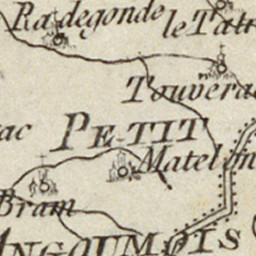 Radegonde
le Tatr
Touvera
ac
PETIT
Matelon
Bram
ANGOUMOIS